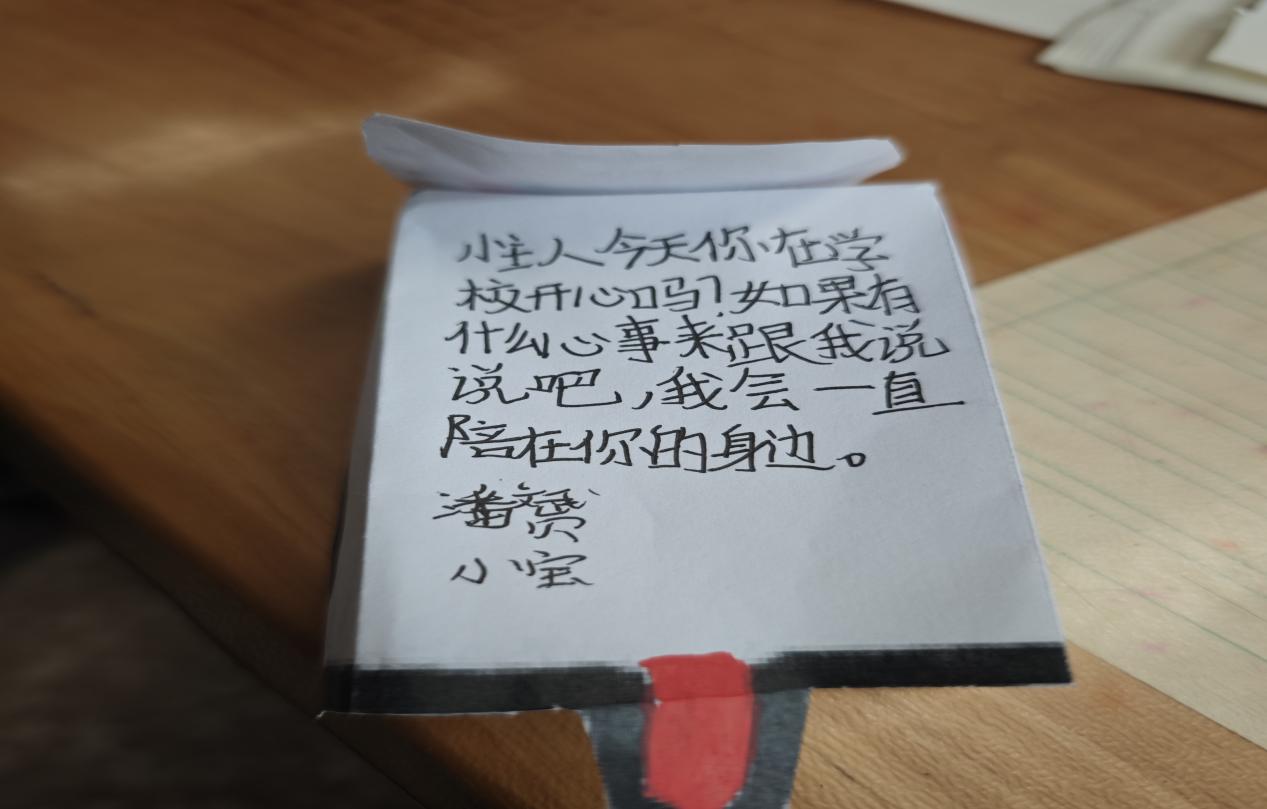 小主人今天你在学
校开心吗?如果有
什么心事来跟我说
说吧,我会一直
陪在你的身边。
潘文赟
小宝